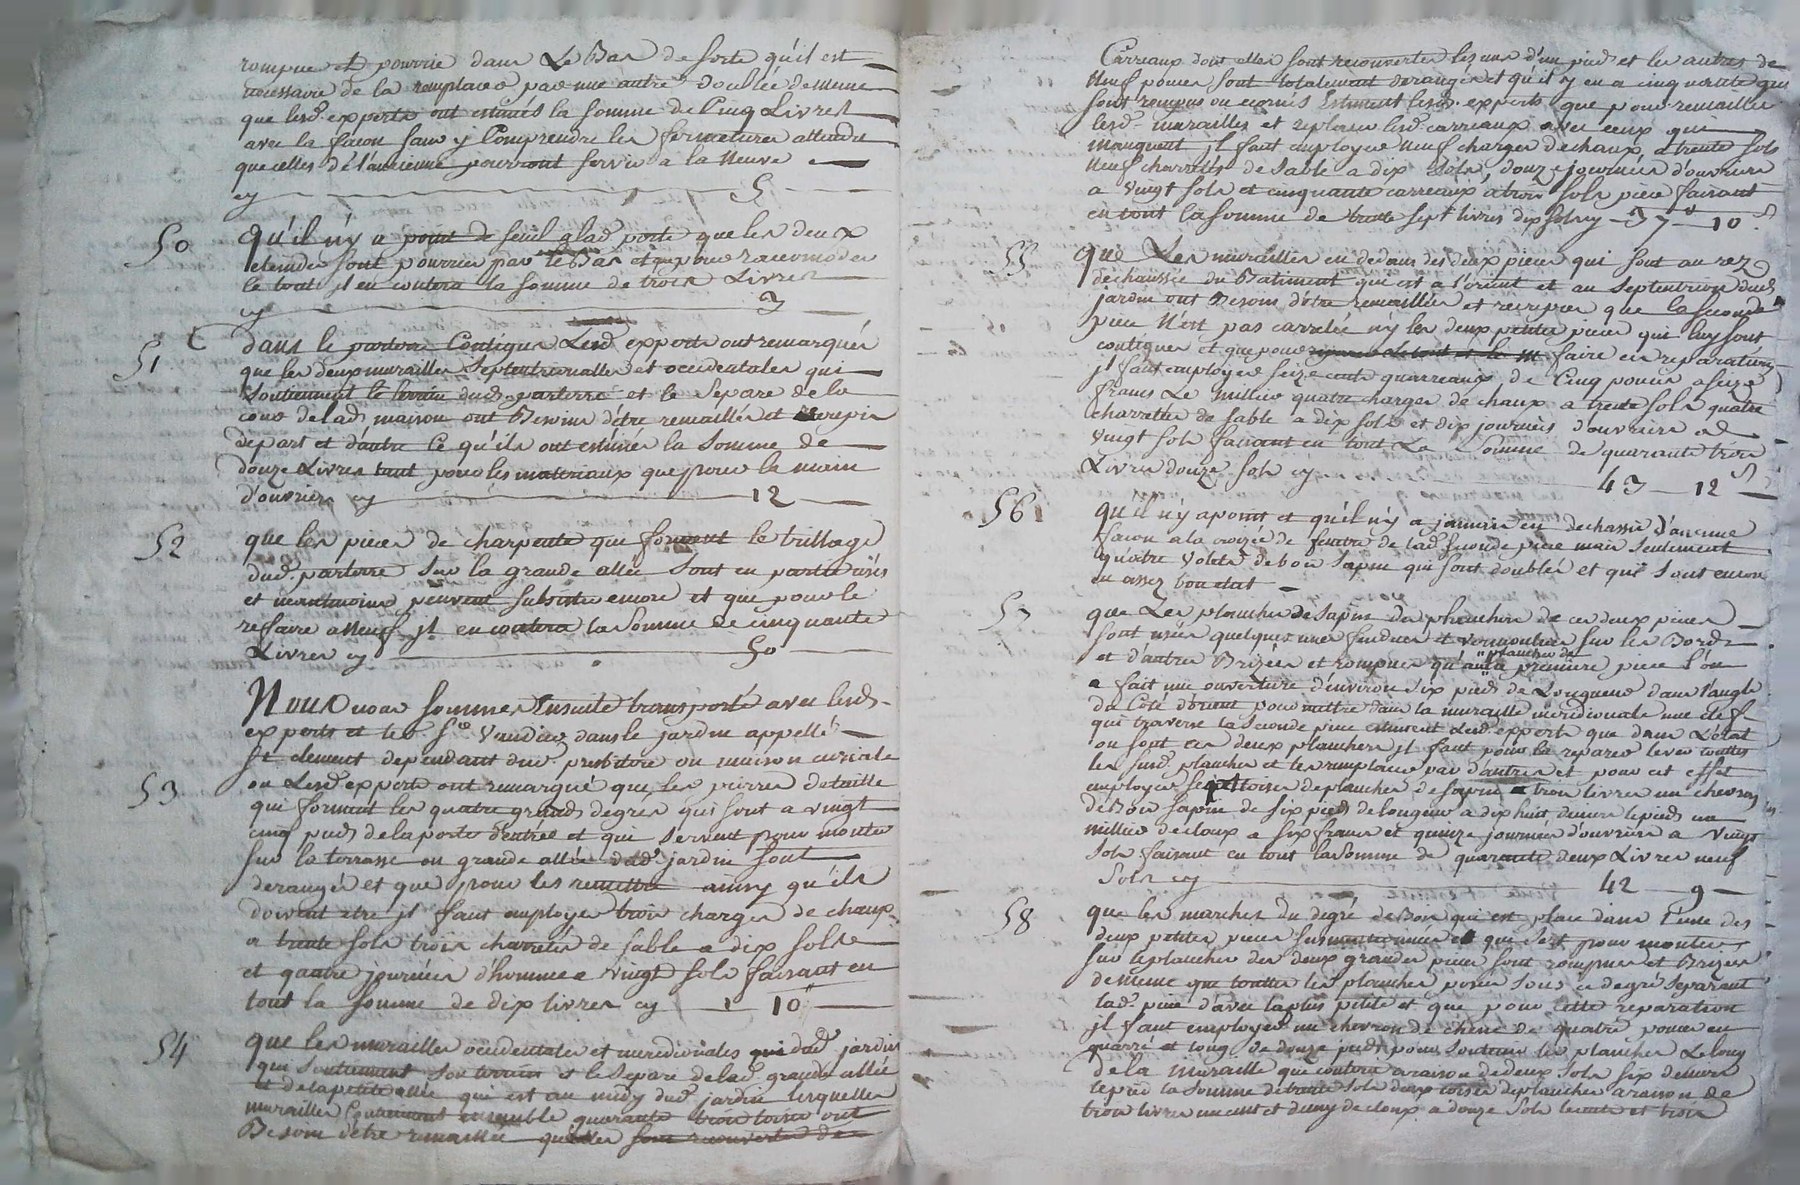 rompue et pourrie dans Le Bas de sorte qu'il est
necessaire de la remplacer par une autre doublée de meme
que lesd. experts ont estimés la somme de Cinq Livres
avec la facon sans y Comprendre les fermetures attendu
que celles de l'ancienne pourront servir a la neuve
cy 5
50 qu'il n'y a point de seuil a lad. porte que les deux
etendes sont pourries par le Bas et que pour racomoder
le tout il en coutera la somme de trois Livres
cy 3
51 dans le parterre Contigue Lesd. experts ont remarqués
que les deux murailles Septentrionalles et occidentales qui
Soutiennent le terrain dud. parterre et le Separe de la
cour de lad. maison ont Besoins d'être remaillés et recrepir
de part et d'autre Ce qu'ils ont estimés la Somme de
douze Livres tant pour les materiaux que pour la main
d'ouvriers cy 12
52 que les pieces de charpente qui forment le trillage
dud. parterre Sur la grande allée Sont en partie usés
et neantmoins peuvent Subsister encore et que pour le
refaire a Neuf il en coutera la Somme de cinquante
Livres cy 50
Nous nous sommes Ensuite transporté avec lesds.
experts et led. Sr. Vaudier dans le jardin appellé
St. clement dependant dud. presbitere ou maison curiale
53 ou Lesd. experts ont remarqué que les pierres de taille
qui forment les quatre grands degres qui sont a vingt
cinq pieds de la porte d'entrée et qui Servent pour monter
Sur la terrasse ou grande allée dud. jardin sont
derangés et que pour les remettre ainsy qu'ils
doivent etre il faut employer trois charges de chaux
a trente sols trois charretés de sable a dix sols
et quatre journées d'homme a vingt sols faisant en
tout la somme de dix livres cy 10
54 que les murailles occidentales et meridionales dud. jardin
qui Soutiennent son terrain et le Separe de lad. grande allée
et de la petite allée qui est au midy dud. jardin lesquelles
murailles Contiennent ensemble quarante trois toises ont
Besoin d'etre remaillés que les sont recouvertes de
Carreaux dont elles sont recouvertes les uns d'un pied et les autres de
Neuf pouces sont totalement deranges et qu'il y en a cinquante qui
sont rompus ou ecornés Estiment lesd. experts que pour remailler
lesd. murailles et replacer lesd. carreaux avec ceux qui
manquent il faut employer neuf charges de chaux a trente sols
Neuf charretés de Sable a dix Sols, douze journées d'ouvriers
a vingt sols et cinquante carreaux a trois sols piece faisant
en tout la Somme de trente sept livres dix sols cy 37 10 s
55 que Les murailles en dedans des deux pieces qui sont au rez
de chaussée du Batiment qui est a l'orient et au Septentrion dud.
jardin ont Besoin d'etre remaillés et recrepies que la seconde
piece N'est pas carrelée n'y les deux petites pieces qui luy sont
contigues et que pour faire ces reparations
il faut employer seize cents quarreaux de Cinq pouces a seize
francs Le millier quatre charges de chaux a trente sols quatre
charrettes de sable a dix sols et dix journées d'ouvriers a
vingt sols faisant en tout La Somme de quarante trois
Livres douze sols cy 43 12 s
56 qu'il n'y a point et qu'il n'y a jamais eu de chassis d'aucune
facon a la croisée de fenetre de lad. seconde piece mais seulement
quatre volets de bois Sapin qui sont doublés et qui sont encore
en assez bon etat
57 que Les planches de Sapin du plancher de ces deux pieces
sont usés quelques unes fendues et vermoulues sur les Bords
et d'autres Brizées et rompues qu'au plancher de la premiere piece l'on
a fait une ouverture d'environ six pieds de Longueur dans l'angle
du Coté d'orient pour mettre dans la muraille meridionale une clef
qui traverse la Seconde piece estiment Lesd. experts que dans L'etat
ou sont ces deux planchers il faut pour les reparer lever touttes
les susd. planches et les remplacer par d'autres et pour cet effet
employer sept toises de planches de sapin a trois livres un chevron
de Bois Sapin de six pieds de longueur a dix huit deniers le pied un
millier de cloux a six francs et quinze journées d'ouvriers a vingt
Sols faisant en tout la Somme de quarante deux Livres neuf
Sols cy 42 9
58 que les marches du degré de Bois qui est placé dans l'une des
deux petites pieces susmentionnées et qui sert pour monter
sur le plancher des deux grandes pieces sont rompues et Brizées
de meme que touttes les planches posées sous ce degré separant
lad. piece d'avec la plus petite et que pour cette reparation
il faut employer un chevron de chene de quatre pouces en
quarré et long de douze pieds pour soutenir les planches Le long
de la muraille que coutera a raison de deux sols six deniers
le pied la Somme de trente sols deux toises de planches a raison de
trois livres un cent et demy de cloux a douze sols le cent et trois